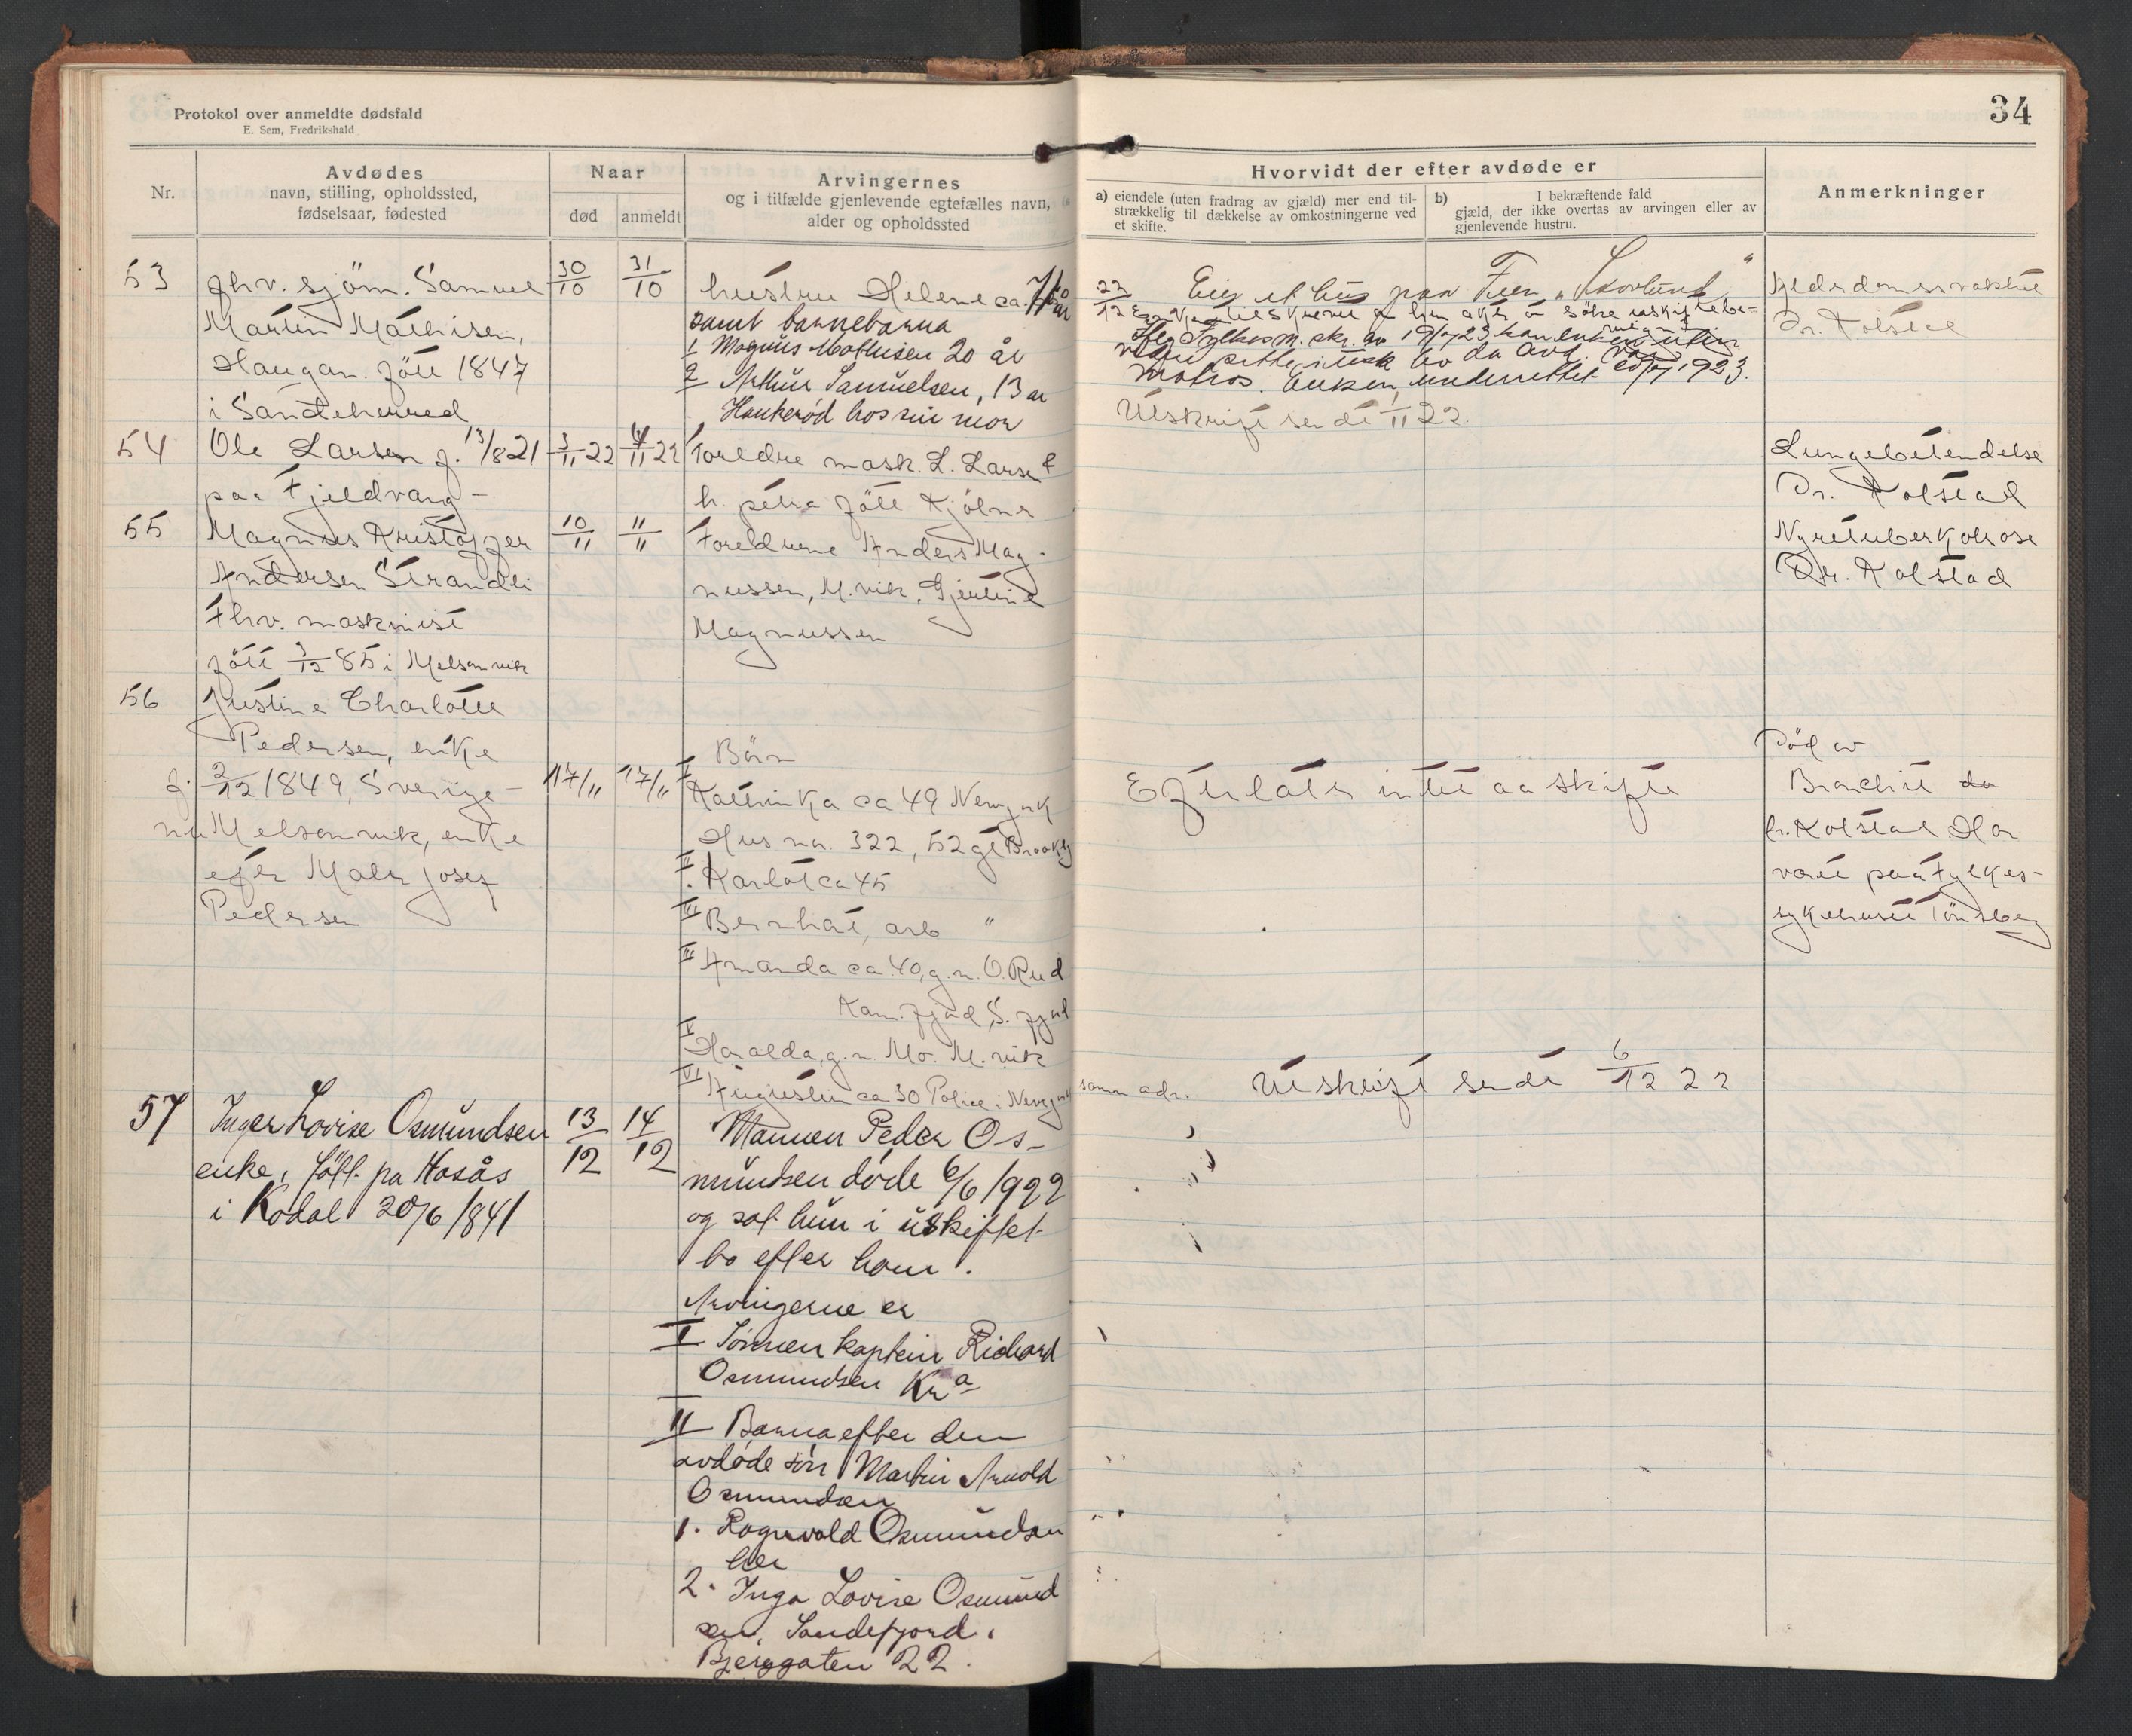 Protokol over anmeldte dødsfald
E. Sem, Fredrikshald
34
Nr.
Avdødes
navn, stilling, opholdssted,
fødselsaar, fødested
Naar
død
anmeldt
Arvingernes
og i tilfælde gjenlevende egtefælles navn,
alder og opholdssted
Hvorvidt der efter avdøde er
a) eiendele (uten fradrag av gjæld) mer end til-
strækkelig til dækkelse av omkostningerne ved
et skifte.
b) I bekræftende fald
gjæld, der ikke overtas av arvingen eller av
gjenlevende hustru.
Anmerkninger
53
fhv. sjöm. Samuel
Martin Mathisen,
Haugan. fött 1847
i Sandeherred
30/10
31/10
hustru Helene ca. 70 år
samt barnebarna
1 Magnus Mathisen 20 år
2 Arthur Samuelsen, 13 år
Haukerød hos sin mor
22/12
Eier et hus paa Feen "Skovlund"
matros. Enken underrettet 20/7 1923.
Utskrift sendt 1/11 22.
Alderdomssvakhet
Dr. Kolstad
54
Ole Larsen f. 13/8 21
paa Fjeldvang -
3/11 22
4/11 22
Foreldre mask. L. Larsen &
h. petra fött Kjölner
Lungebetendelse
Dr. Kolstad
55
Magnus Kristoffer
Andersen Strandli
Fhv. maskinist
fött 3/12 85 i Melsomvik
10/11
11/11
Foreldrene Anders Mag-
nussen, M.vik, Gjertine
Magnussen
Nyretuberkolose
Dr. Kolstad
56
Justine Charlotte
Pedersen, enke
f. 2/12 1849, Sverige -
nu Melsomvik, enke
efter Maler Josef
Pedersen
17/11
17/11
Börn
I Kathinka ca 49 Newyork
Hus nr. 322, 52 gt Brooklyn
II Karlot ca 45
III Bernhat, arb "
IIII Amanda ca 40, g.m. O. Rud
Kam.fjord, S.fjord
V Haralda, g.m. Mo. M.vik
VI Augustin ca 30 Police i Newyork samm adr.
Efterlater intet aa skifte
Utskrift sendt 6/12 22
Död av
Bronchit
dr. Kolstad Har
været paa Fylkes-
sykehuset Tönsberg
57
Inger Lovise Osmundsen
enke, fött. pa Hasås
i Kodal 20/6 1841
13/12
14/12
Mannen Peder Os-
mundsen døde 6/6 1922
og sat hun i uskiftet
bo efter ham.
Arvingerne er
I Sønnen kaptein Richard
Osmundsen Kra
II Barna efter den
avdøde søn Martin Arnold
Osmundsen
1. Ragnvald Osmundsen
her
2. Inga Lovise Osmund
sen, Sandefjord,
Bjerggaten 22.